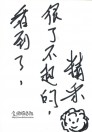 精采
很了不起的，
看到了，